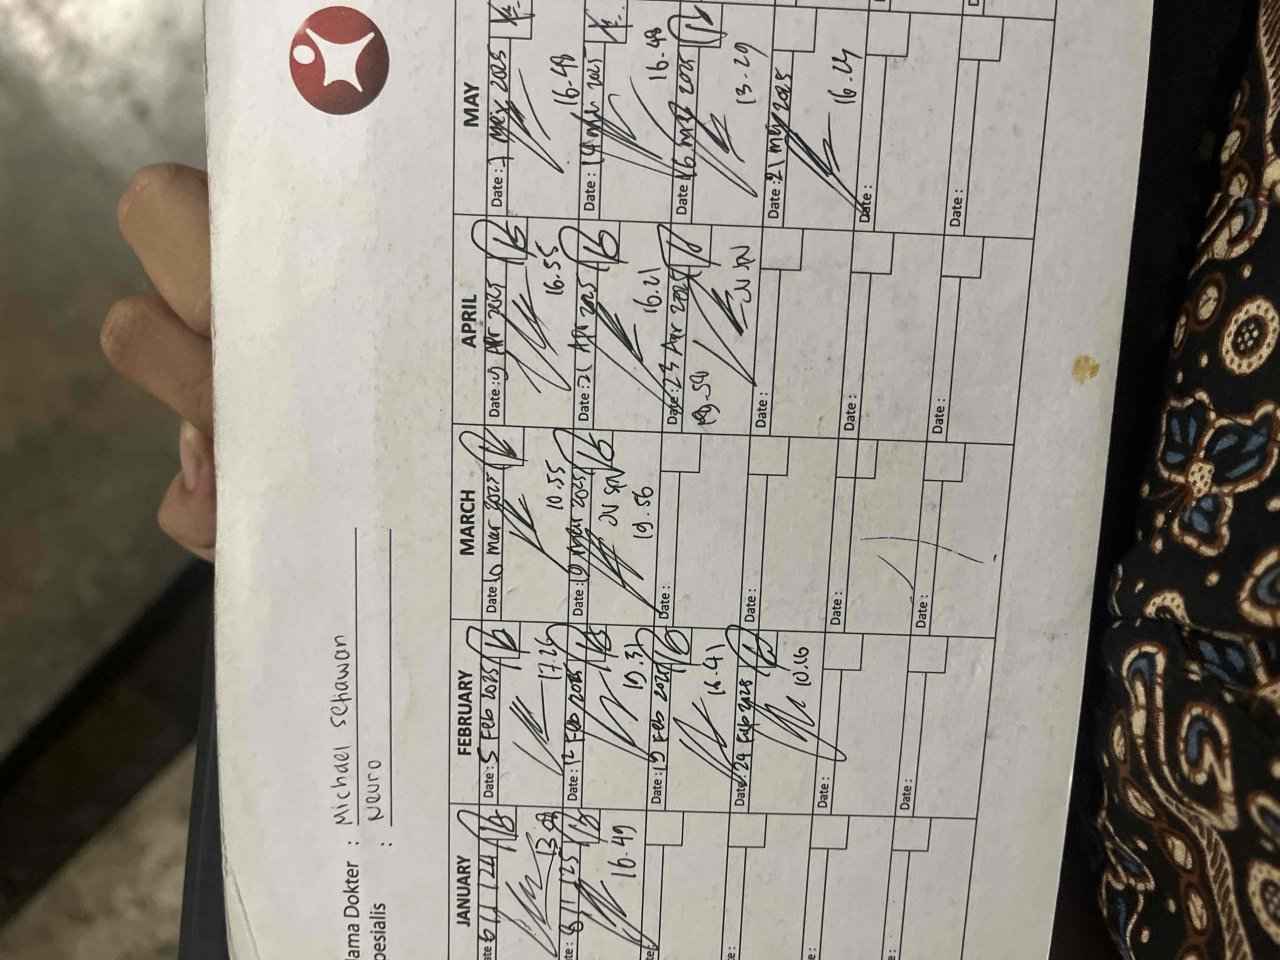 ama Dokter : Michael Setiawan
pesialis : Neuro
JANUARY
ate 6/1/24
13.
te: 8/1/25
16.49
e:
e:
e:
e:
FEBRUARY
Date: 5 Feb 2025
17.26
Date: 12 Feb 2025
19.31
Date: 19 Feb 2025
16.41
Date: 24 Feb 2025
10.16
Date:
Date:
MARCH
Date 6 mar 2025
10.55
Date: 10 mar 2025
19.56
Date:
Date:
Date:
Date:
APRIL
Date: 9 Apr 2025
16.55
Date: 21 Apr 2025
16.21
Date: 23 Apr 2025
19.50
Date:
Date:
Date:
MAY
Date: 7 May 2025
16.48
Date: 14 May 2025
16.48
Date 16 May 2025
13.29
Date: 21 May 2025
16.24
Date:
Date: